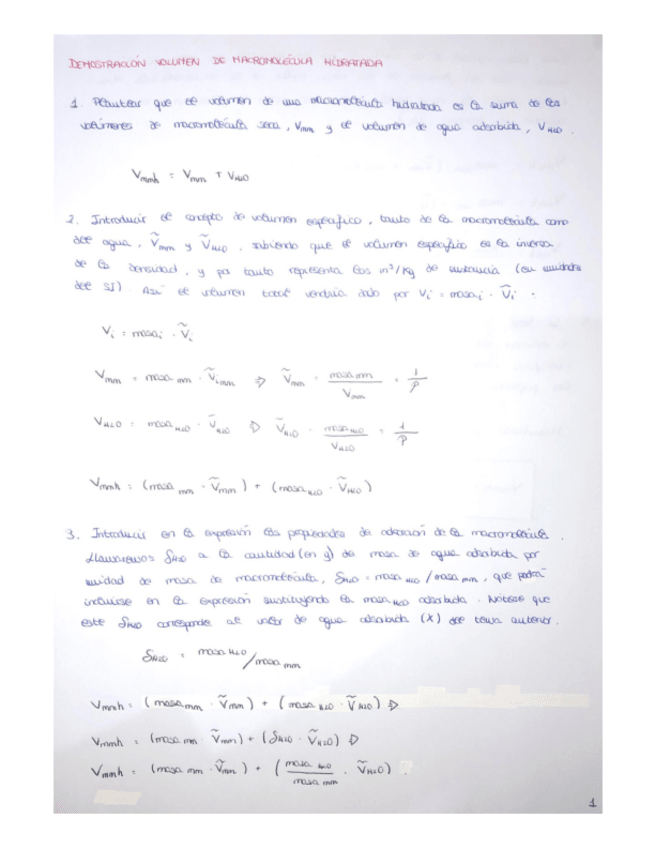 DEMOSTRACIÓN VOLUMEN DE MACROMOLÉCULA HIDRATADA
1. Plantear que el volumen de una macromolécula hidratada es la suma de los
volúmenes de macromolécula seca, Vmm y el volumen de agua adsorbida, VH2O.
Vmmh = Vmm + VH2O
2. Introducir el concepto de volumen específico, tanto de la macromolécula como
del agua, Ṽmm y ṼH2O, sabiendo que el volumen específico es la inversa
de la densidad, y por tanto representa los m³/Kg de sustancia (en unidades
del SI). Así el volumen total vendría dado por Vi = masai · Ṽi :
Vi = masai · Ṽi
Vmm = masa mm · Ṽimm ⇒ Ṽmm = masa mm / Vmm = 1/ρ
VH2O = masa H2O · ṼH2O ⇒ ṼH2O = masa H2O / VH2O = 1/ρ
Vmmh = (masa mm · Ṽmm) + (masa H2O · ṼH2O)
3. Introducir en la expresión las propiedades de adsorción de la macromolécula.
Llamaremos δH2O a la cantidad (en g) de masa de agua adsorbida por
unidad de masa de macromolécula, δH2O = masa H2O / masa mm, que podrá
incluirse en la expresión sustituyendo la masa H2O adsorbida. Nótese que
este δH2O corresponde al valor de agua adsorbida (X) del tema anterior.
δH2O = masa H2O / masa mm
Vmmh = (masa mm · Ṽmm) + (masa H2O · ṼH2O) ⇒
Vmmh = (masa mm · Ṽmm) + (δH2O · ṼH2O) ⇒
Vmmh = (masa mm · Ṽmm) + (masa H2O / masa mm · ṼH2O)
1